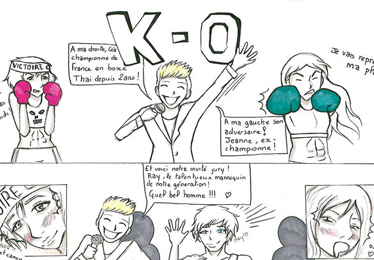 K-O
VICTOIRE
A ma droite, Géa
championne de
france en boxe
Thaï depuis 2ans!
Je vais repre
ma ph
A ma gauche son
adversaire!
Jeanne, ex
championne!
Et voici notre invité jury!
Ray, le talentueux mannequin
de notre génération!
Quel bel homme !!!